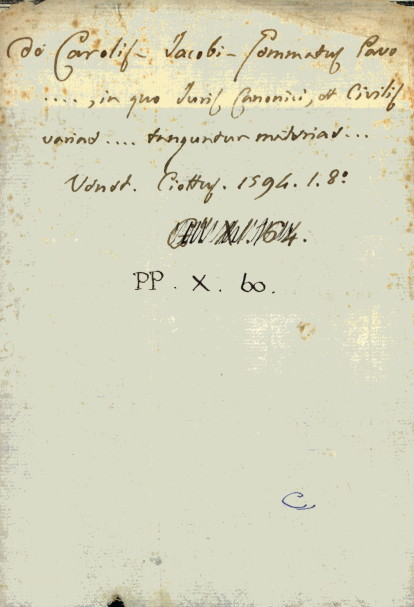 De Carolis- Jacobi- Commatus Pavo
...., in quo Juris Canonici, et Civilis
variae .... tanguntur materiae...
Venet. Ciottus. 1594. 1. 8º
PP. X. 60.
C